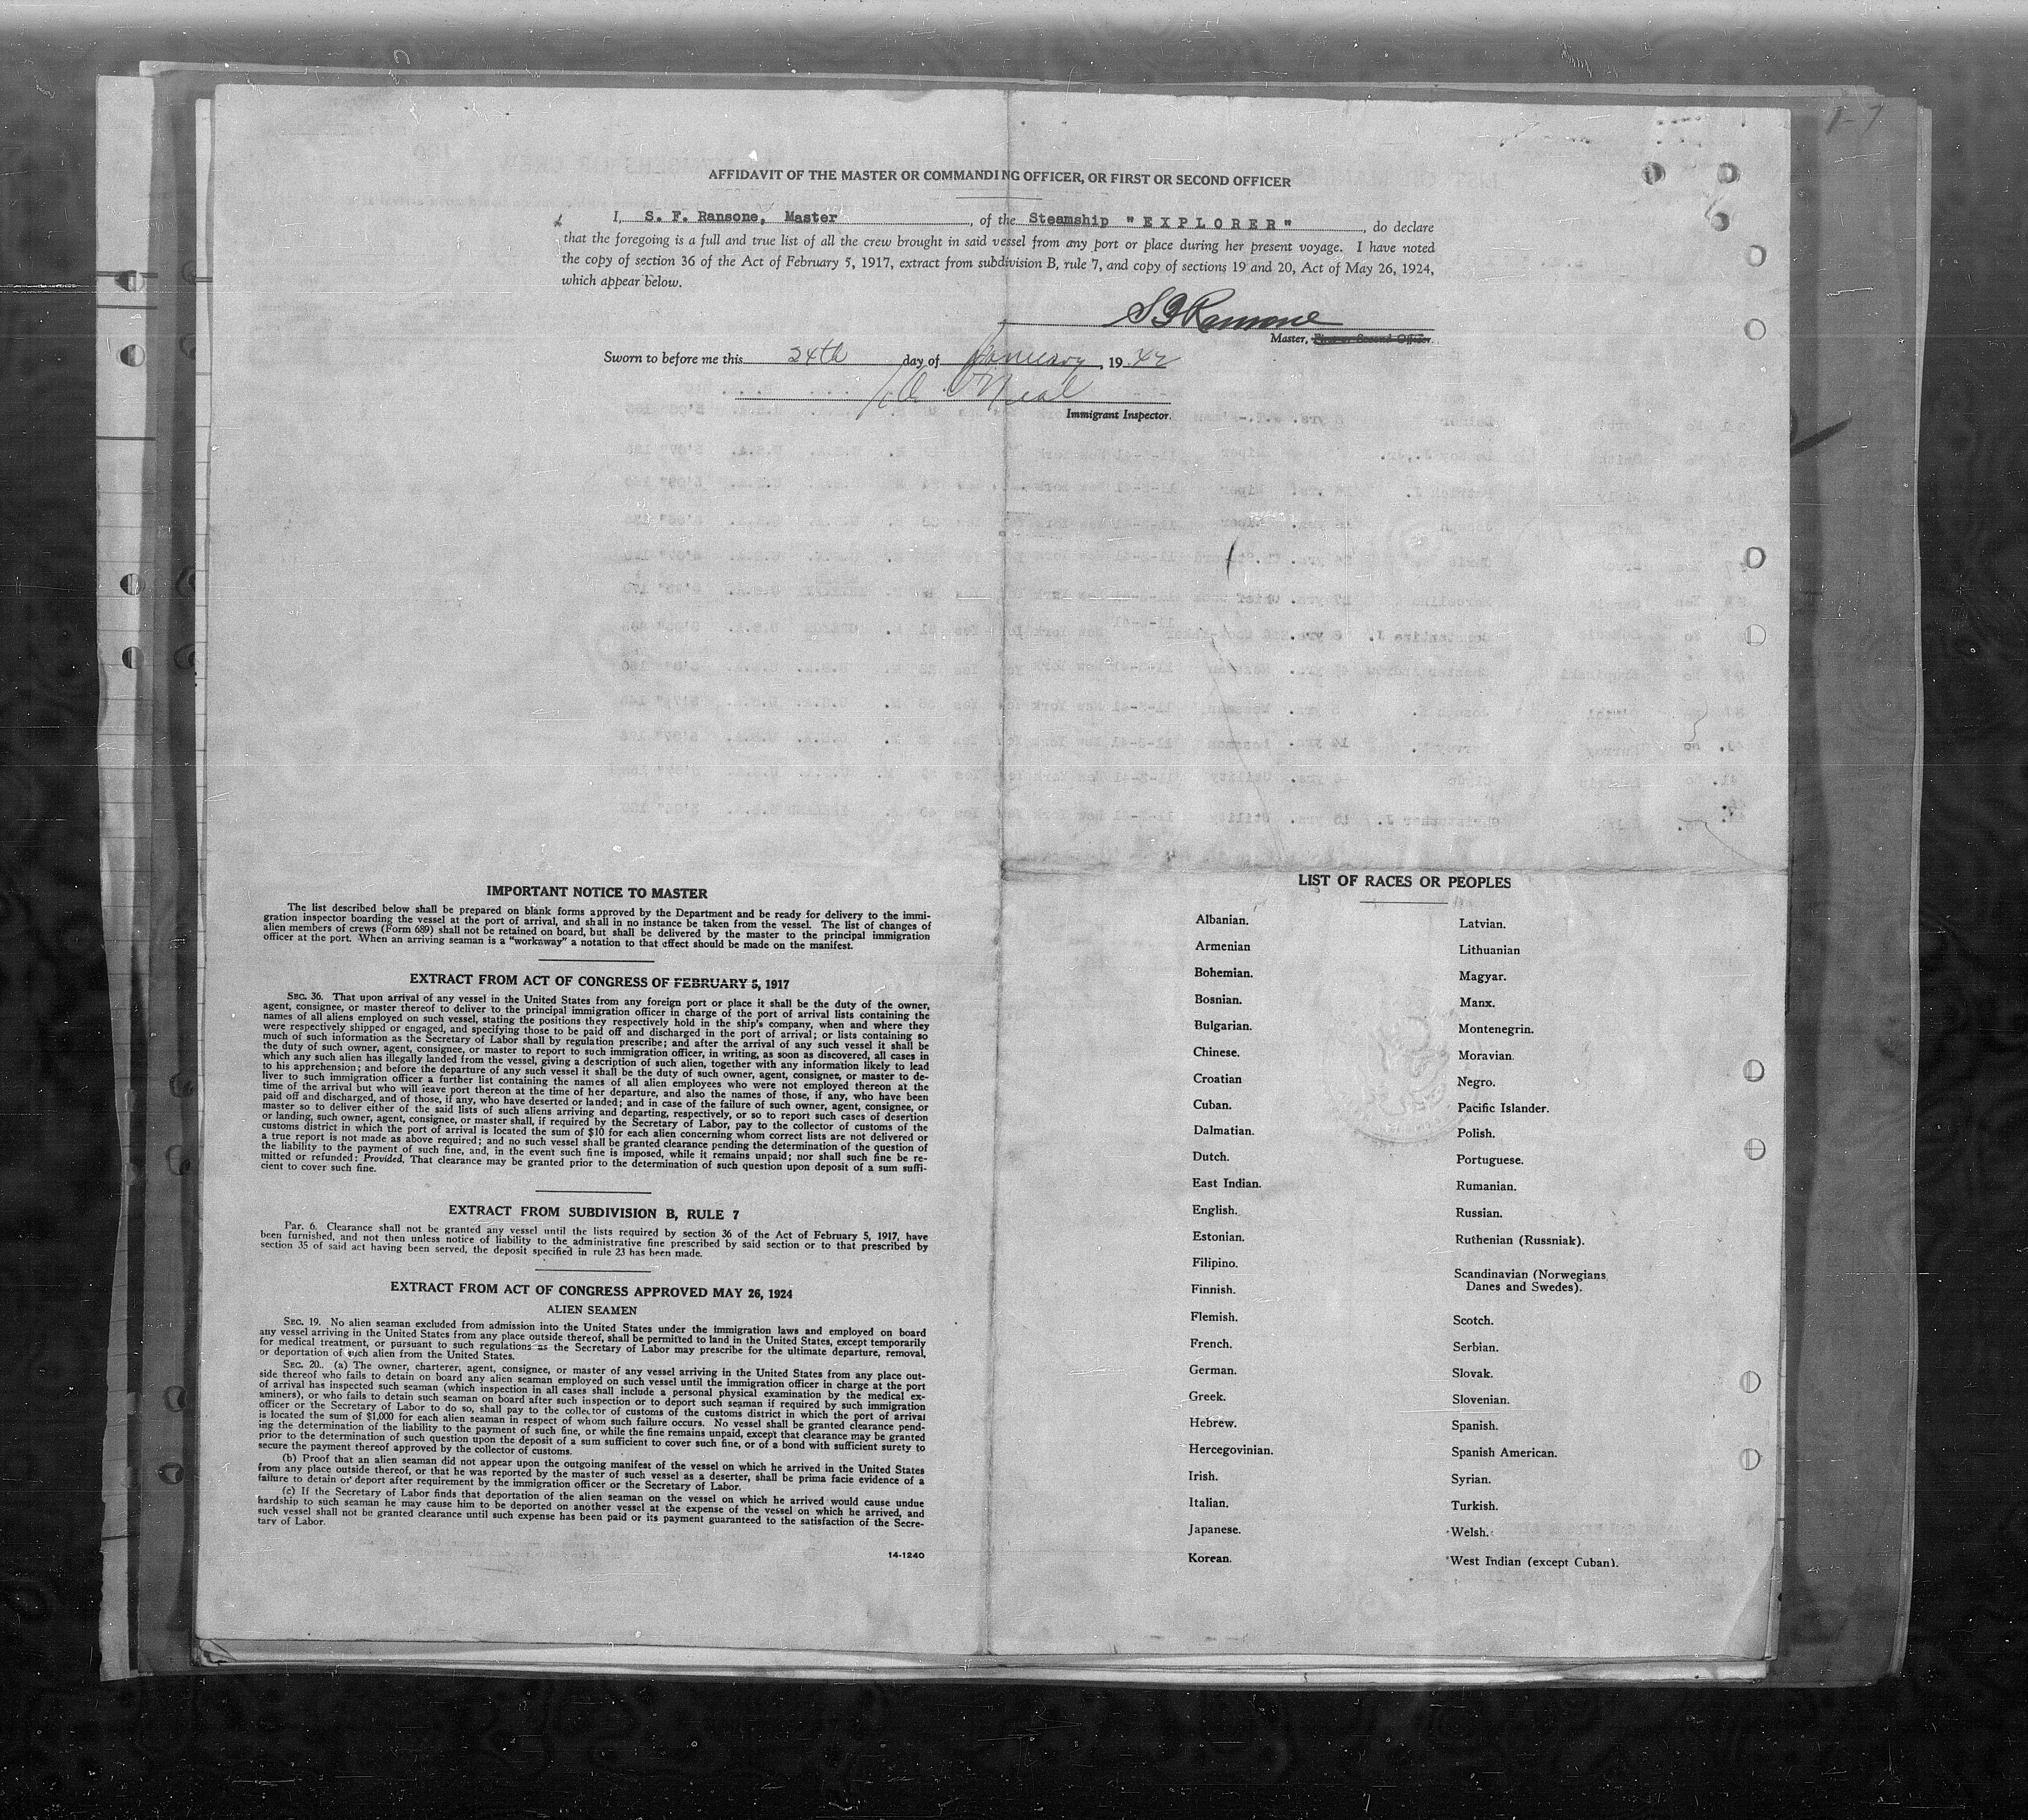 1-7
AFFIDAVIT OF THE MASTER OR COMMANDING OFFICER, OR FIRST OR SECOND OFFICER
I, S. F. Ransone, Master, of the Steamship "EXPLORER", do declare
that the foregoing is a full and true list of all the crew brought in said vessel from any port or place during her present voyage. I have noted
the copy of section 36 of the Act of February 5, 1917, extract from subdivision B, rule 7, and copy of sections 19 and 20, Act of May 26, 1924,
which appear below.
S F Ransone
Master, First or Second Officer.
Sworn to before me this 24th day of January, 1942
O'Neal
Immigrant Inspector.
IMPORTANT NOTICE TO MASTER
The list described below shall be prepared on blank forms approved by the Department and be ready for delivery to the immi-
gration inspector boarding the vessel at the port of arrival, and shall in no instance be taken from the vessel. The list of changes of
alien members of crews (Form 689) shall not be retained on board, but shall be delivered by the master to the principal immigration
officer at the port. When an arriving seaman is a "workaway" a notation to that effect should be made on the manifest.
EXTRACT FROM ACT OF CONGRESS OF FEBRUARY 5, 1917
SEC. 36. That upon arrival of any vessel in the United States from any foreign port or place it shall be the duty of the owner,
agent, consignee, or master thereof to deliver to the principal immigration officer in charge of the port of arrival lists containing the
names of all aliens employed on such vessel, stating the positions they respectively hold in the ship's company, when and where they
were respectively shipped or engaged, and specifying those to be paid off and discharged in the port of arrival; or lists containing so
much of such information as the Secretary of Labor shall by regulation prescribe; and after the arrival of any such vessel it shall be
the duty of such owner, agent, consignee, or master to report to such immigration officer, in writing, as soon as discovered, all cases in
which any such alien has illegally landed from the vessel, giving a description of such alien, together with any information likely to lead
to his apprehension; and before the departure of any such vessel it shall be the duty of such owner, agent, consignee, or master to de-
liver to such immigration officer a further list containing the names of all alien employees who were not employed thereon at the
time of the arrival but who will leave port thereon at the time of her departure, and also the names of those, if any, who have been
paid off and discharged, and of those, if any, who have deserted or landed; and in case of the failure of such owner, agent, consignee, or
master so to deliver either of the said lists of such aliens arriving and departing, respectively, or so to report such cases of desertion
or landing, such owner, agent, consignee, or master shall, if required by the Secretary of Labor, pay to the collector of customs of the
customs district in which the port of arrival is located the sum of $10 for each alien concerning whom correct lists are not delivered or
a true report is not made as above required; and no such vessel shall be granted clearance pending the determination of the question of
the liability to the payment of such fine, and, in the event such fine is imposed, while it remains unpaid; nor shall such fine be re-
mitted or refunded: Provided, That clearance may be granted prior to the determination of such question upon deposit of a sum suffi-
cient to cover such fine.
EXTRACT FROM SUBDIVISION B, RULE 7
Par. 6. Clearance shall not be granted any vessel until the lists required by section 36 of the Act of February 5, 1917, have
been furnished, and not then unless notice of liability to the administrative fine prescribed by said section or to that prescribed by
section 35 of said act having been served, the deposit specified in rule 23 has been made.
EXTRACT FROM ACT OF CONGRESS APPROVED MAY 26, 1924
ALIEN SEAMEN
SEC. 19. No alien seaman excluded from admission into the United States under the immigration laws and employed on board
any vessel arriving in the United States from any place outside thereof, shall be permitted to land in the United States, except temporarily
for medical treatment, or pursuant to such regulations as the Secretary of Labor may prescribe for the ultimate departure, removal,
or deportation of such alien from the United States.
SEC. 20. (a) The owner, charterer, agent, consignee, or master of any vessel arriving in the United States from any place out-
side thereof who fails to detain on board any alien seaman employed on such vessel until the immigration officer in charge at the port
of arrival has inspected such seaman (which inspection in all cases shall include a personal physical examination by the medical ex-
aminers), or who fails to detain such seaman on board after such inspection or to deport such seaman if required by such immigration
officer or the Secretary of Labor to do so, shall pay to the collector of customs of the customs district in which the port of arrival
is located the sum of $1,000 for each alien seaman in respect of whom such failure occurs. No vessel shall be granted clearance pend-
ing the determination of the liability to the payment of such fine, or while the fine remains unpaid, except that clearance may be granted
prior to the determination of such question upon the deposit of a sum sufficient to cover such fine, or of a bond with sufficient surety to
secure the payment thereof approved by the collector of customs.
(b) Proof that an alien seaman did not appear upon the outgoing manifest of the vessel on which he arrived in the United States
from any place outside thereof, or that he was reported by the master of such vessel as a deserter, shall be prima facie evidence of a
failure to detain or deport after requirement by the immigration officer or the Secretary of Labor.
(c) If the Secretary of Labor finds that deportation of the alien seaman on the vessel on which he arrived would cause undue
hardship to such seaman he may cause him to be deported on another vessel at the expense of the vessel on which he arrived, and
such vessel shall not be granted clearance until such expense has been paid or its payment guaranteed to the satisfaction of the Secre-
tary of Labor.
14-1240
LIST OF RACES OR PEOPLES
Albanian.
Armenian
Bohemian.
Bosnian.
Bulgarian.
Chinese.
Croatian
Cuban.
Dalmatian.
Dutch.
East Indian.
English.
Estonian.
Filipino.
Finnish.
Flemish.
French.
German.
Greek.
Hebrew.
Hercegovinian.
Irish.
Italian.
Japanese.
Korean.
Latvian.
Lithuanian
Magyar.
Manx.
Montenegrin.
Moravian.
Negro.
Pacific Islander.
Polish.
Portuguese.
Rumanian.
Russian.
Ruthenian (Russniak).
Scandinavian (Norwegians,
Danes and Swedes).
Scotch.
Serbian.
Slovak.
Slovenian.
Spanish.
Spanish American.
Syrian.
Turkish.
Welsh.
West Indian (except Cuban).